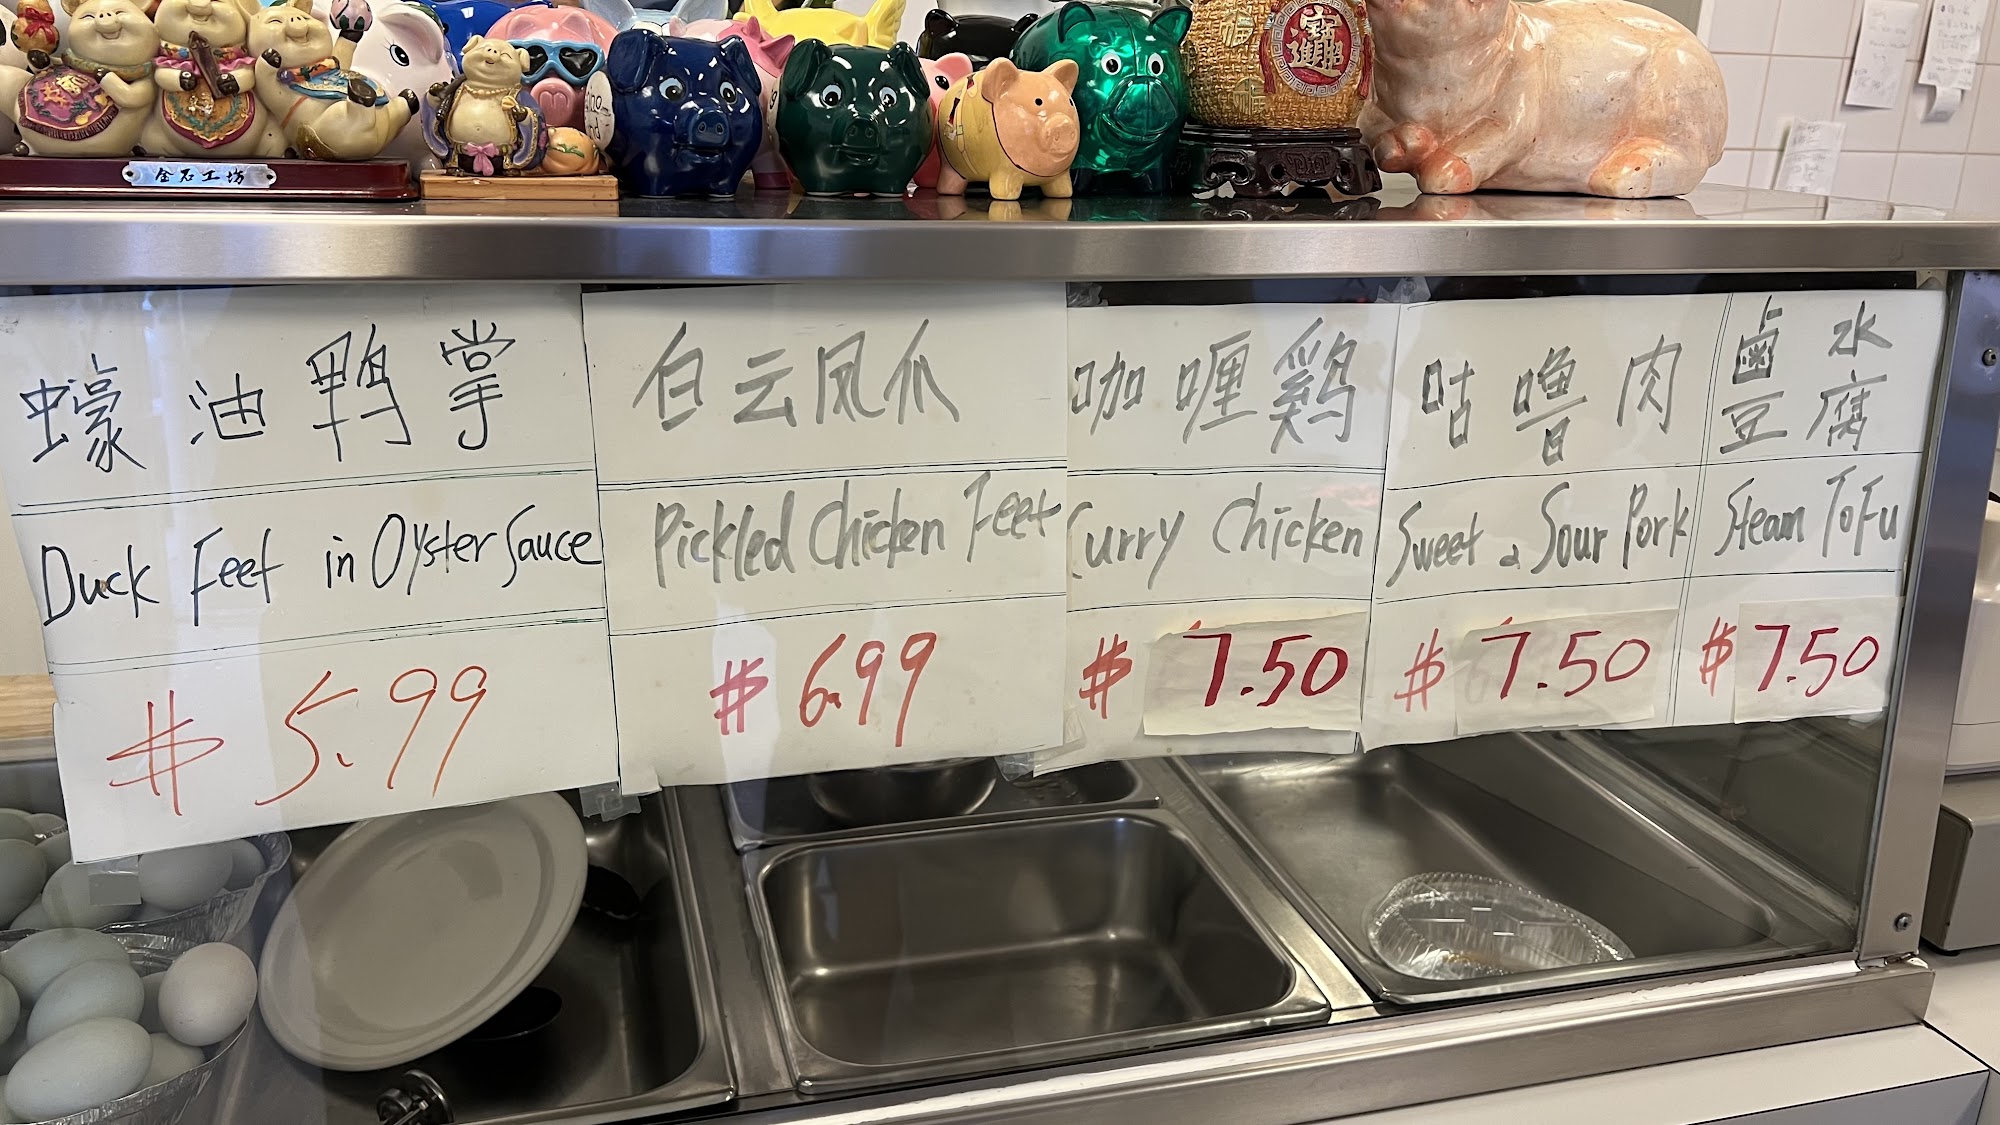 金石工坊
福
招財進寶
蠔油鸭掌
Duck Feet in Oyster Sauce
$ 5.99
白云凤爪
Pickled Chicken Feet
$ 6.99
咖喱鷄
Curry Chicken
$ 7.50
咕噜肉
Sweet & Sour Pork
$ 7.50
鹵水
豆腐
Steam ToFu
$ 7.50